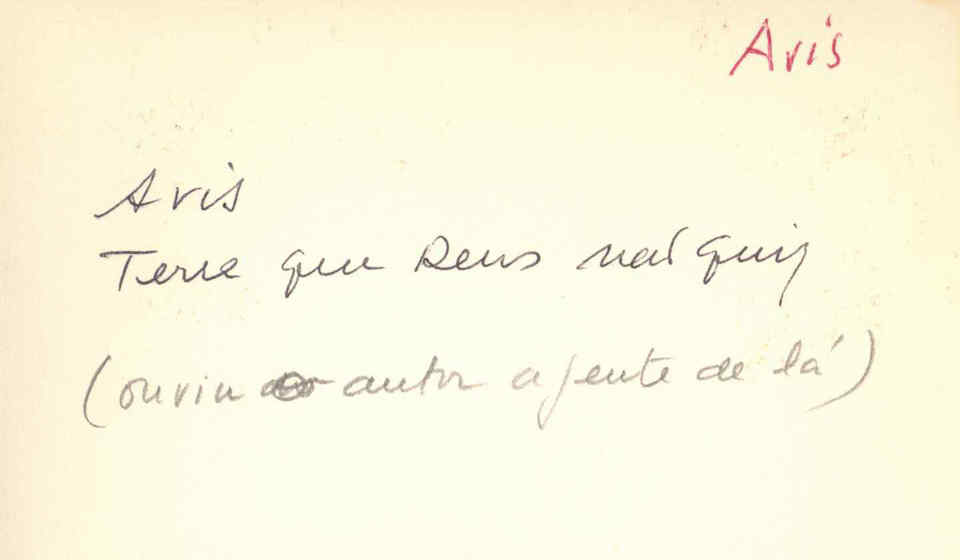 Avis
Avis
Terra que Deus não quiz
(ouviu autor a gente de lá)